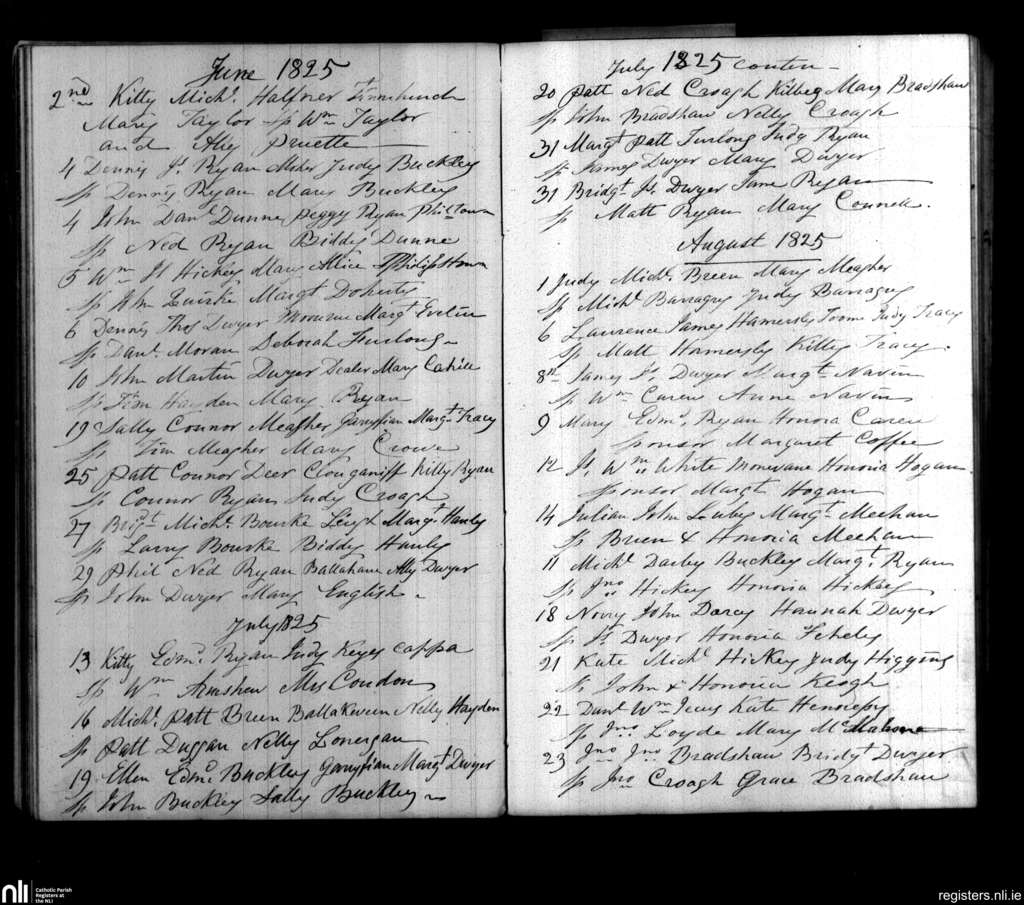 June 1825
2nd Kitty Michl. Halfner
Mary Taylor Sp Wm Taylor
and Aley Pruette
4 Dennis Js. Ryan Maher Judy Buckley
Sp Dennis Ryan Mary Buckley
4 John Danl Dunne Peggy Ryan Philstown
Sp Ned Ryan Biddy Dunne
5 Wm Js Hickey Mary Allice Philipstown
Sp John Quirke Margt Doherty
6 Dennis Thos Dwyer Margt
Sp Danl. Moran Deborah Furlong
10 John Martin Dwyer Dealer Mary Cahill
Sp Tim Hayden Mary Ryan
19 Sally Connor Meagher Garryfian Margt Tracy
Sp Tim Meagher Mary Crowe
25 Patt Connor Deer Clonganiff Kitty Ryan
Sp Connor Ryan Judy Croagh
27 Brigt Michl Bourke Margt Hanly
Sp Larry Bourke Biddy Hanly
29 Phil Ned Ryan Ballahane Ally Dwyer
Sp John Dwyer Mary English
July 1825
13 Kitty Edmd. Ryan Judy Keyes Cappa
Sp Wm Armshaw Mrs Condon
16 Michl. Patt Breen Ballakeveen Nelly Hayden
Sp Patt Duggan Nelly Lonergan
19 Ellen Edmd Buckley Garryfian Margt Dwyer
Sp John Buckley Sally Buckley
July 1825 contin
20 Patt Ned Croagh Kilbeg Mary Bradshaw
Sp John Bradshaw Nelly Croagh
31 Margt Patt Furlong Judy Ryan
Sp James Dwyer Mary Dwyer
31 Bridgt Js. Dwyer Jane Ryan
Sp Matt Ryan Mary Connell.
August 1825
1 Judy Michl. Breen Mary Meagher
Sp Michl Barragry Judy Barragry
6 Laurence James Hamersly Toom Judy Tracy
Sp Matt Hamersly Kitty Tracy.
8th James Js. Dwyer Margt Navin
Sp Wm Carew Anne Navin
9 Mary Edmd. Ryan Honora Carew
Sponsor Margaret Coffee
12 Js. Wm White Monevane Honoria Hogan
Sponsor Margt Hogan
14 Julian John Margt Meehan
Sp Brien & Honoria Meehan
11 Michl Darby Buckley Margt. Ryan
Sp Jno Hickey Honoria Hickey
18 Norry John Darcy Hannah Dwyer
Sp Js Dwyer Honoria Feheley
21 Kate Michl Hickey Judy Higgins
Sp John & Honoria Keogh
22 Danl Wm Kate Hennessy
Sp Jno Loyde Mary McMahone
23 Jno Jno Bradshaw Bridgt Dwyer
Sp Jno Croagh Grace Bradshaw
nli
Catholic Parish
Registers at
the NLI
registers.nli.ie